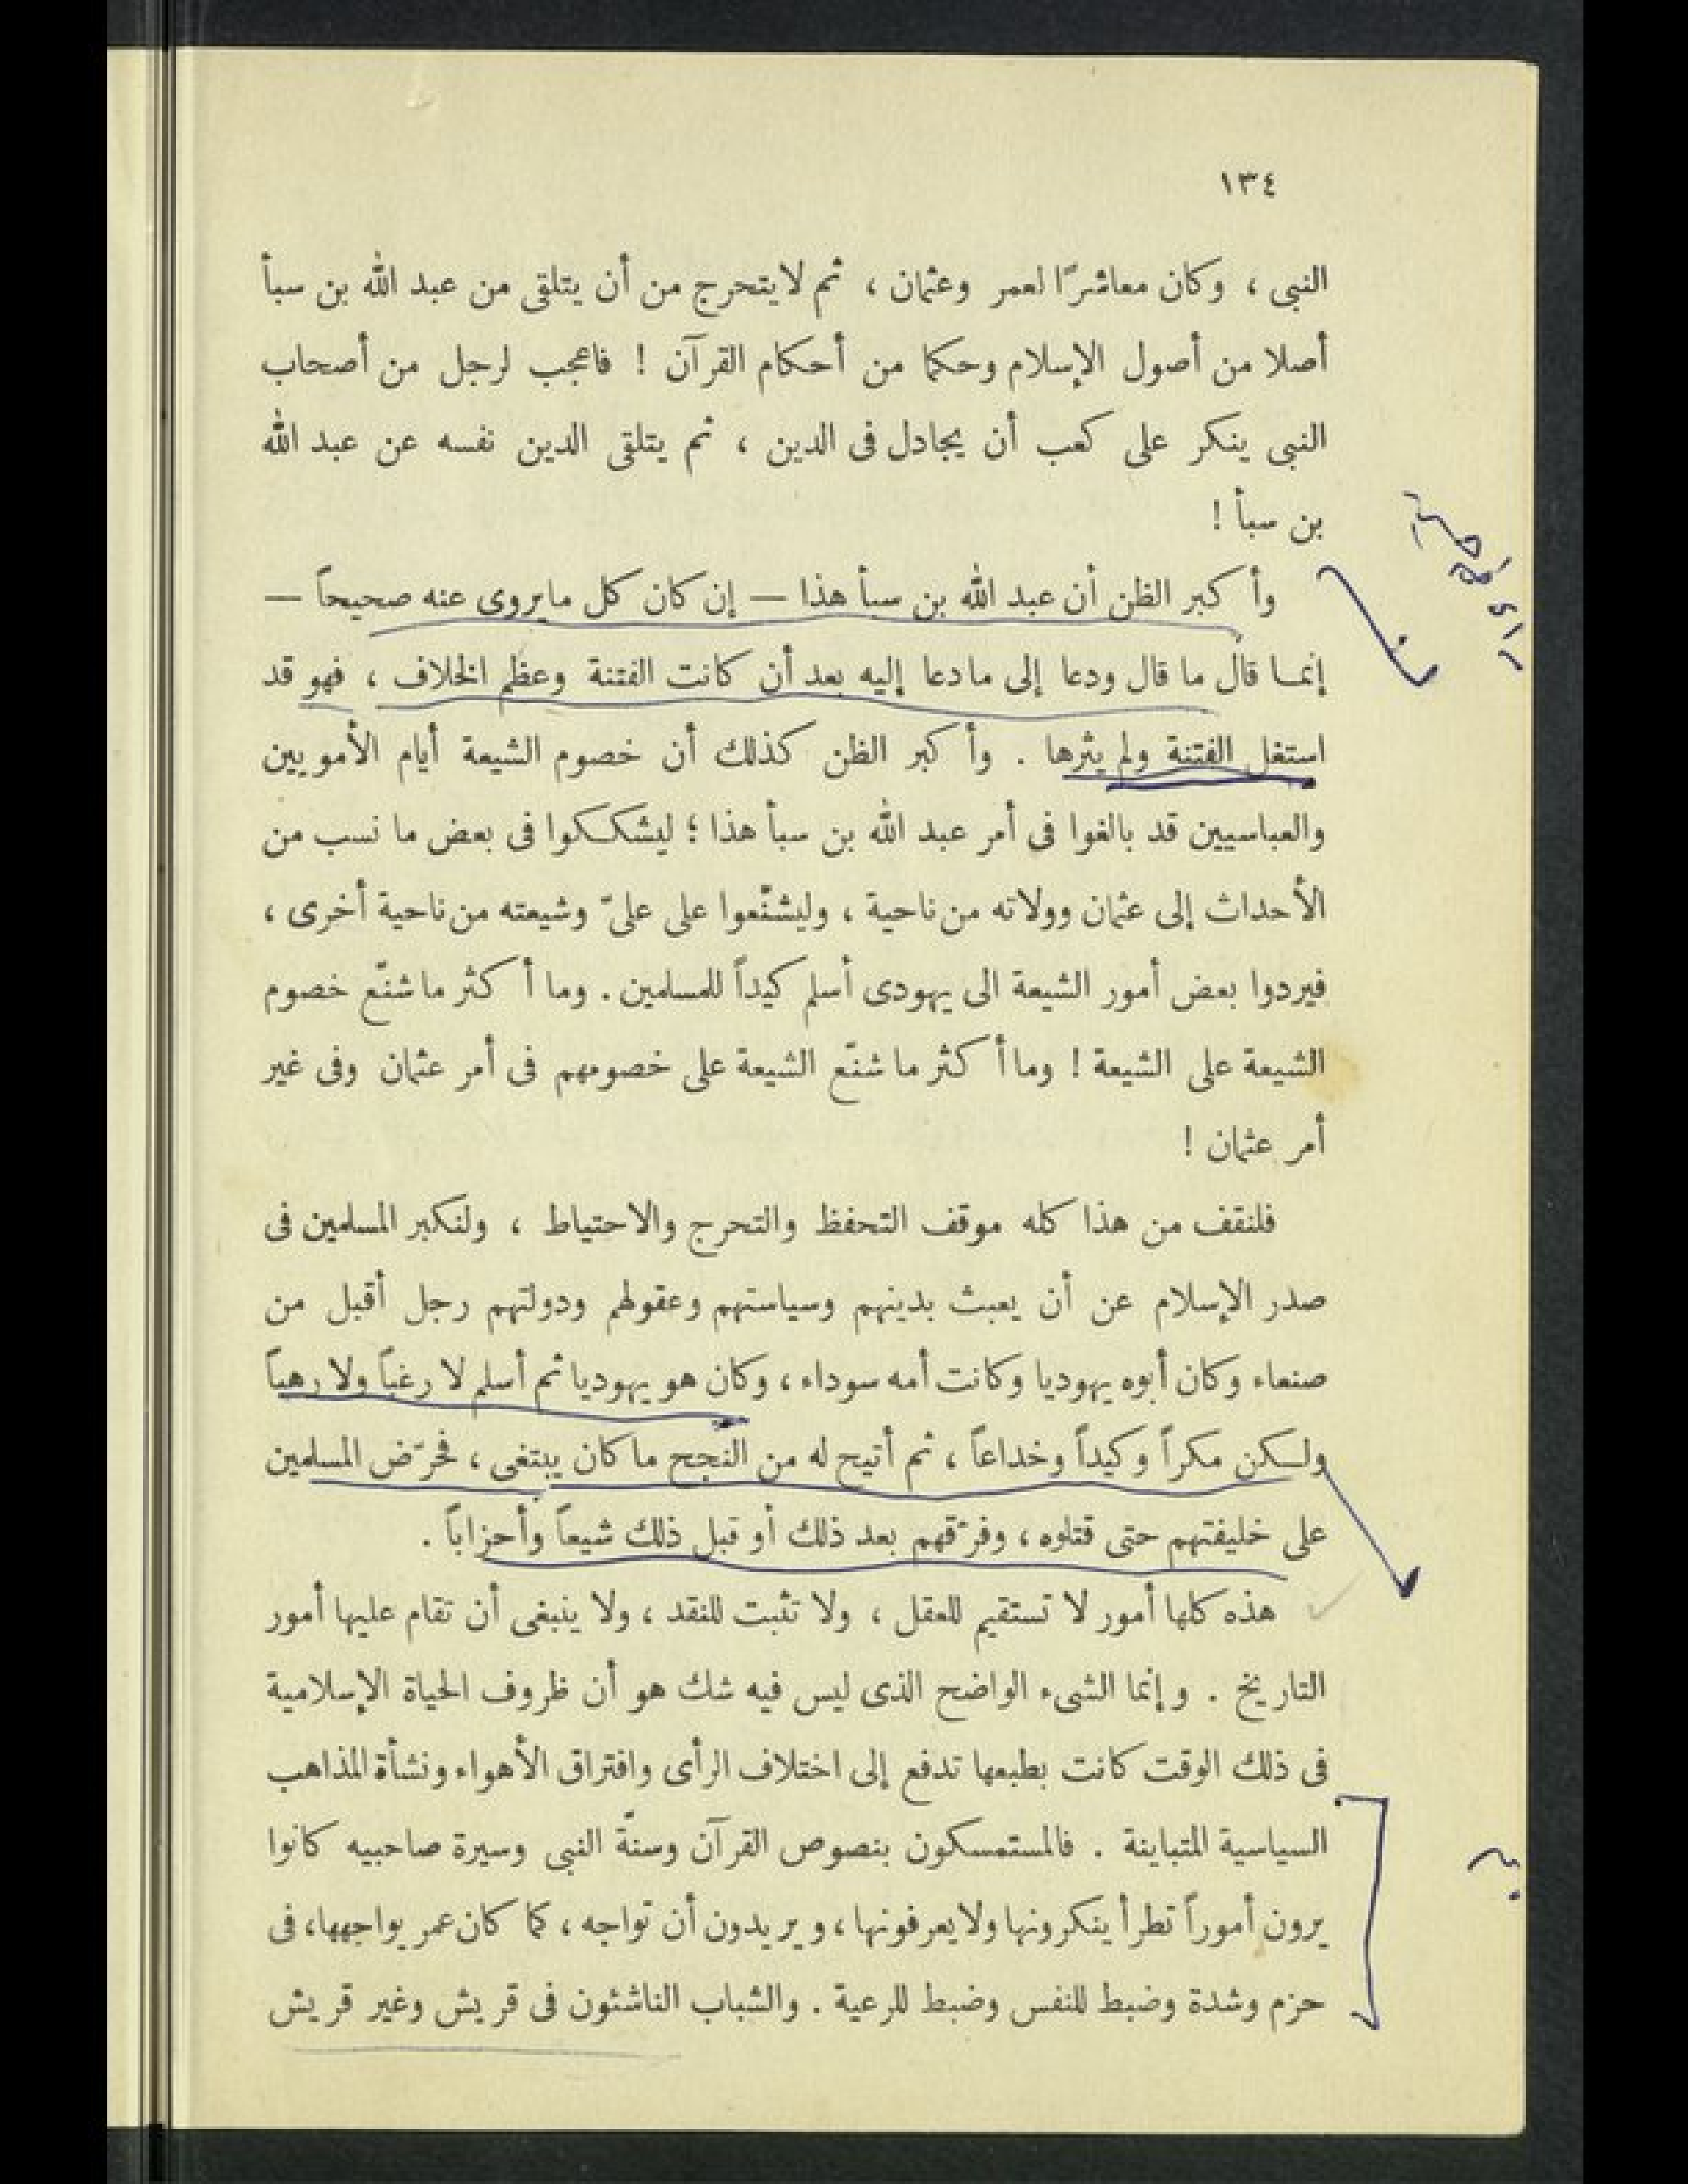 ١٣٤
النبى ، وكان معاشرًا لعمر وعثمان ، ثم لا يتحرج من أن يتلقى من عبد الله بن سبأ
أصلا من أصول الإسلام وحكما من أحكام القرآن ! فاعجب لرجل من أصحاب
النبى ينكر على كعب أن يجادل فى الدين ، ثم يتلقى الدين نفسه عن عبد الله
بن سبأ !
وأكبر الظن أن عبد الله بن سبأ هذا — إن كان كل ما يروى عنه صحيحاً —
إنما قال ما قال ودعا إلى ما دعا إليه بعد أن كانت الفتنة وعظم الخلاف ، فهو قد
استغل الفتنة ولم يثرها . وأكبر الظن كذلك أن خصوم الشيعة أيام الأمويين
والعباسيين قد بالغوا فى أمر عبد الله بن سبأ هذا ؛ ليشككوا فى بعض ما نسب من
الأحداث إلى عثمان وولاته من ناحية ، وليشنّعوا على علىّ وشيعته من ناحية أخرى ،
فيردوا بعض أمور الشيعة الى يهودى أسلم كيداً للمسلمين . وما أكثر ما شنّع خصوم
الشيعة على الشيعة ! وما أكثر ما شنّع الشيعة على خصومهم فى أمر عثمان وفى غير
أمر عثمان !
فلنقف من هذا كله موقف التحفظ والتحرج والاحتياط ، ولنكبر المسلمين فى
صدر الإسلام عن أن يعبث بدينهم وسياستهم وعقولهم ودولتهم رجل أقبل من
صنعاء وكان أبوه يهوديا وكانت أمه سوداء ، وكان هو يهوديا ثم أسلم لا رغباً ولا رهباً
ولكن مكراً وكيداً وخداعاً ، ثم أتيح له من النجح ما كان يبتغى ، فحرّض المسلمين
على خليفتهم حتى قتلوه ، وفرّقهم بعد ذلك أو قبل ذلك شيعاً وأحزاباً .
هذه كلها أمور لا تستقيم للعقل ، ولا تثبت للنقد ، ولا ينبغى أن تقام عليها أمور
التاريخ . وإنما الشىء الواضح الذى ليس فيه شك هو أن ظروف الحياة الإسلامية
فى ذلك الوقت كانت بطبعها تدفع إلى اختلاف الرأى وافتراق الأهواء ونشأة المذاهب
السياسية المتباينة . فالمستمسكون بنصوص القرآن وسنّة النبى وسيرة صاحبيه كانوا
يرون أموراً تطرأ ينكرونها ولا يعرفونها ، ويريدون أن تواجه ، كما كان عمر يواجهها ، فى
حزم وشدة وضبط للنفس وضبط للرعية . والشباب الناشئون فى قريش وغير قريش